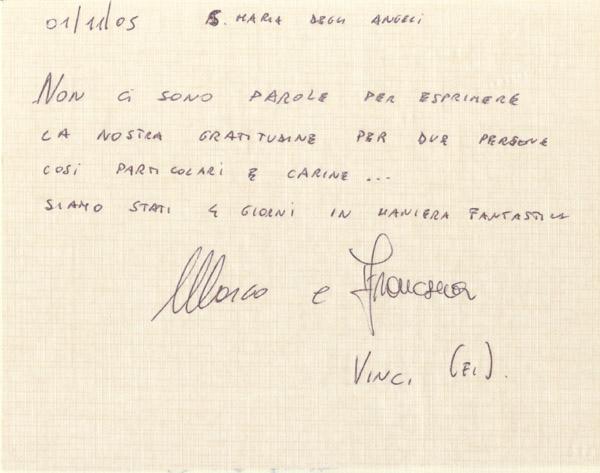 01/11/05 S. MARIA DEGLI ANGELI
NON CI SONO PAROLE PER ESPRIMERE
LA NOSTRA GRATITUDINE PER DUE PERSONE
COSÌ PARTICOLARI E CARINE ...
SIAMO STATI 4 GIORNI IN MANIERA FANTASTICA
Marco e Francesca
VINCI (FI).